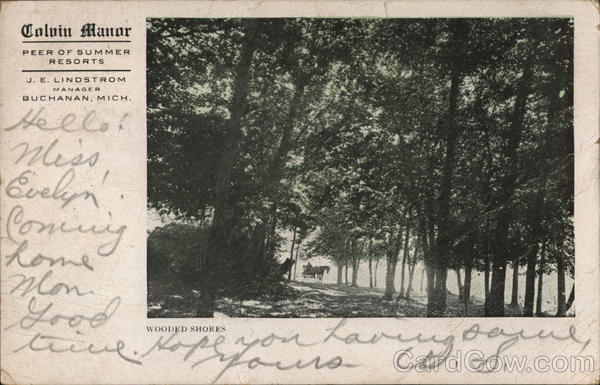 Colvin Manor
PEER OF SUMMER
RESORTS
J. E. LINDSTROM
MANAGER
BUCHANAN, MICH.
Hello!
Miss
Evelyn!
Coming
home
Mon.
Good
time. Hope you having same
Yours
WOODED SHORES
CardCow.com